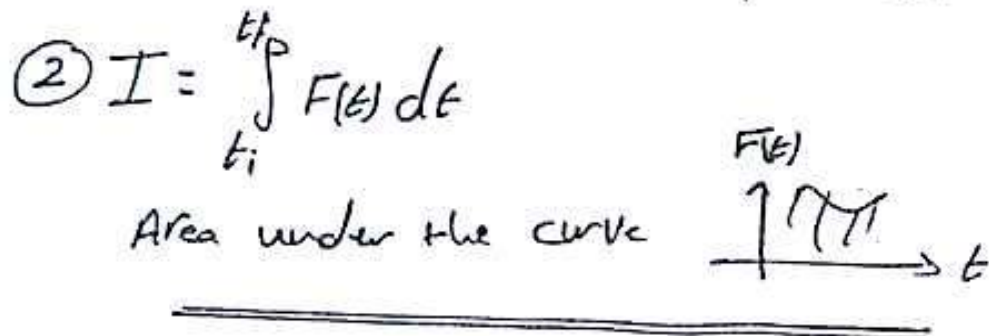 ② I = ∫_{ti}^{tf} F(t) dt
Area under the curve
F(t)
t